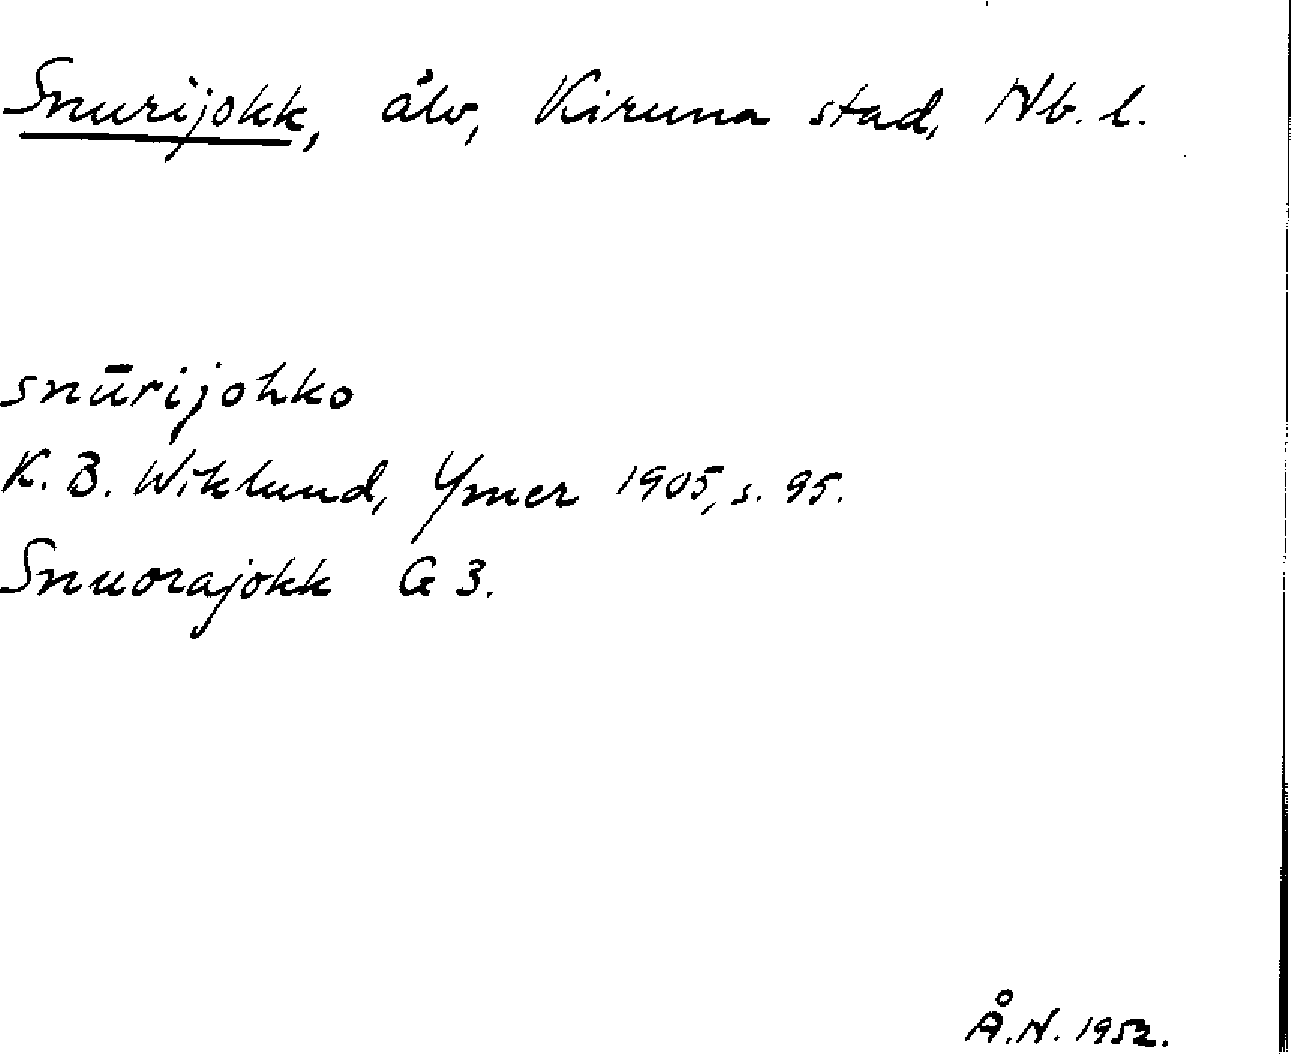 Snurijokk, älv, Kiruna stad, Nb. l.
snūrijohko
K. B. Wiklund, Ymer 1905, s. 95.
Snuorajokk G 3.
Å. N. 1952.